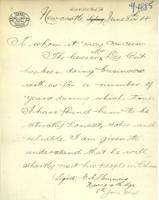 14/4885
Newcastle Sydney June 8th 14
To whom it may concern
The bearer Mr
has been doing business
with us for a number of
years during which time
I have found him to be
strictly honest, sober and
reliable. I am given to
understand that he will
shortly visit his people in China
Signed
Newcastle